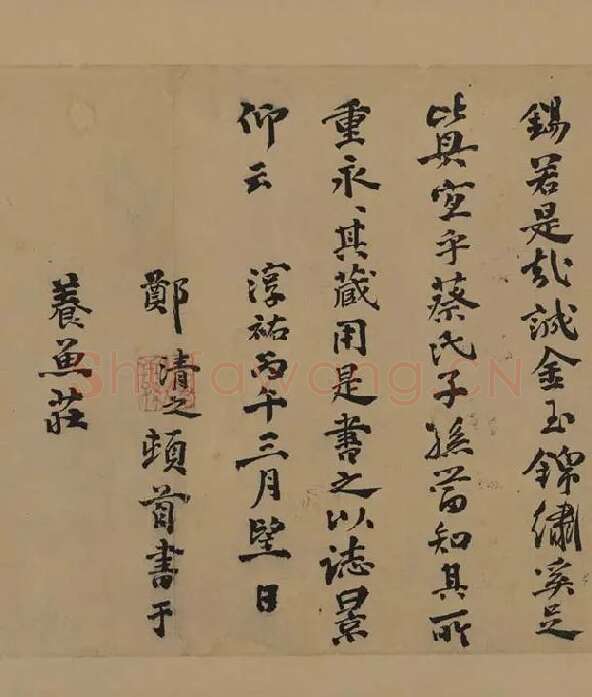 錫若是哉誠金玉錦繡奚足
比其宜乎蔡氏子孫當知其所
重永、其藏用是書之以誌景
仰云 淳祐丙午三月望日
鄭清之頓首書于
養魚莊
Shufawang.CN